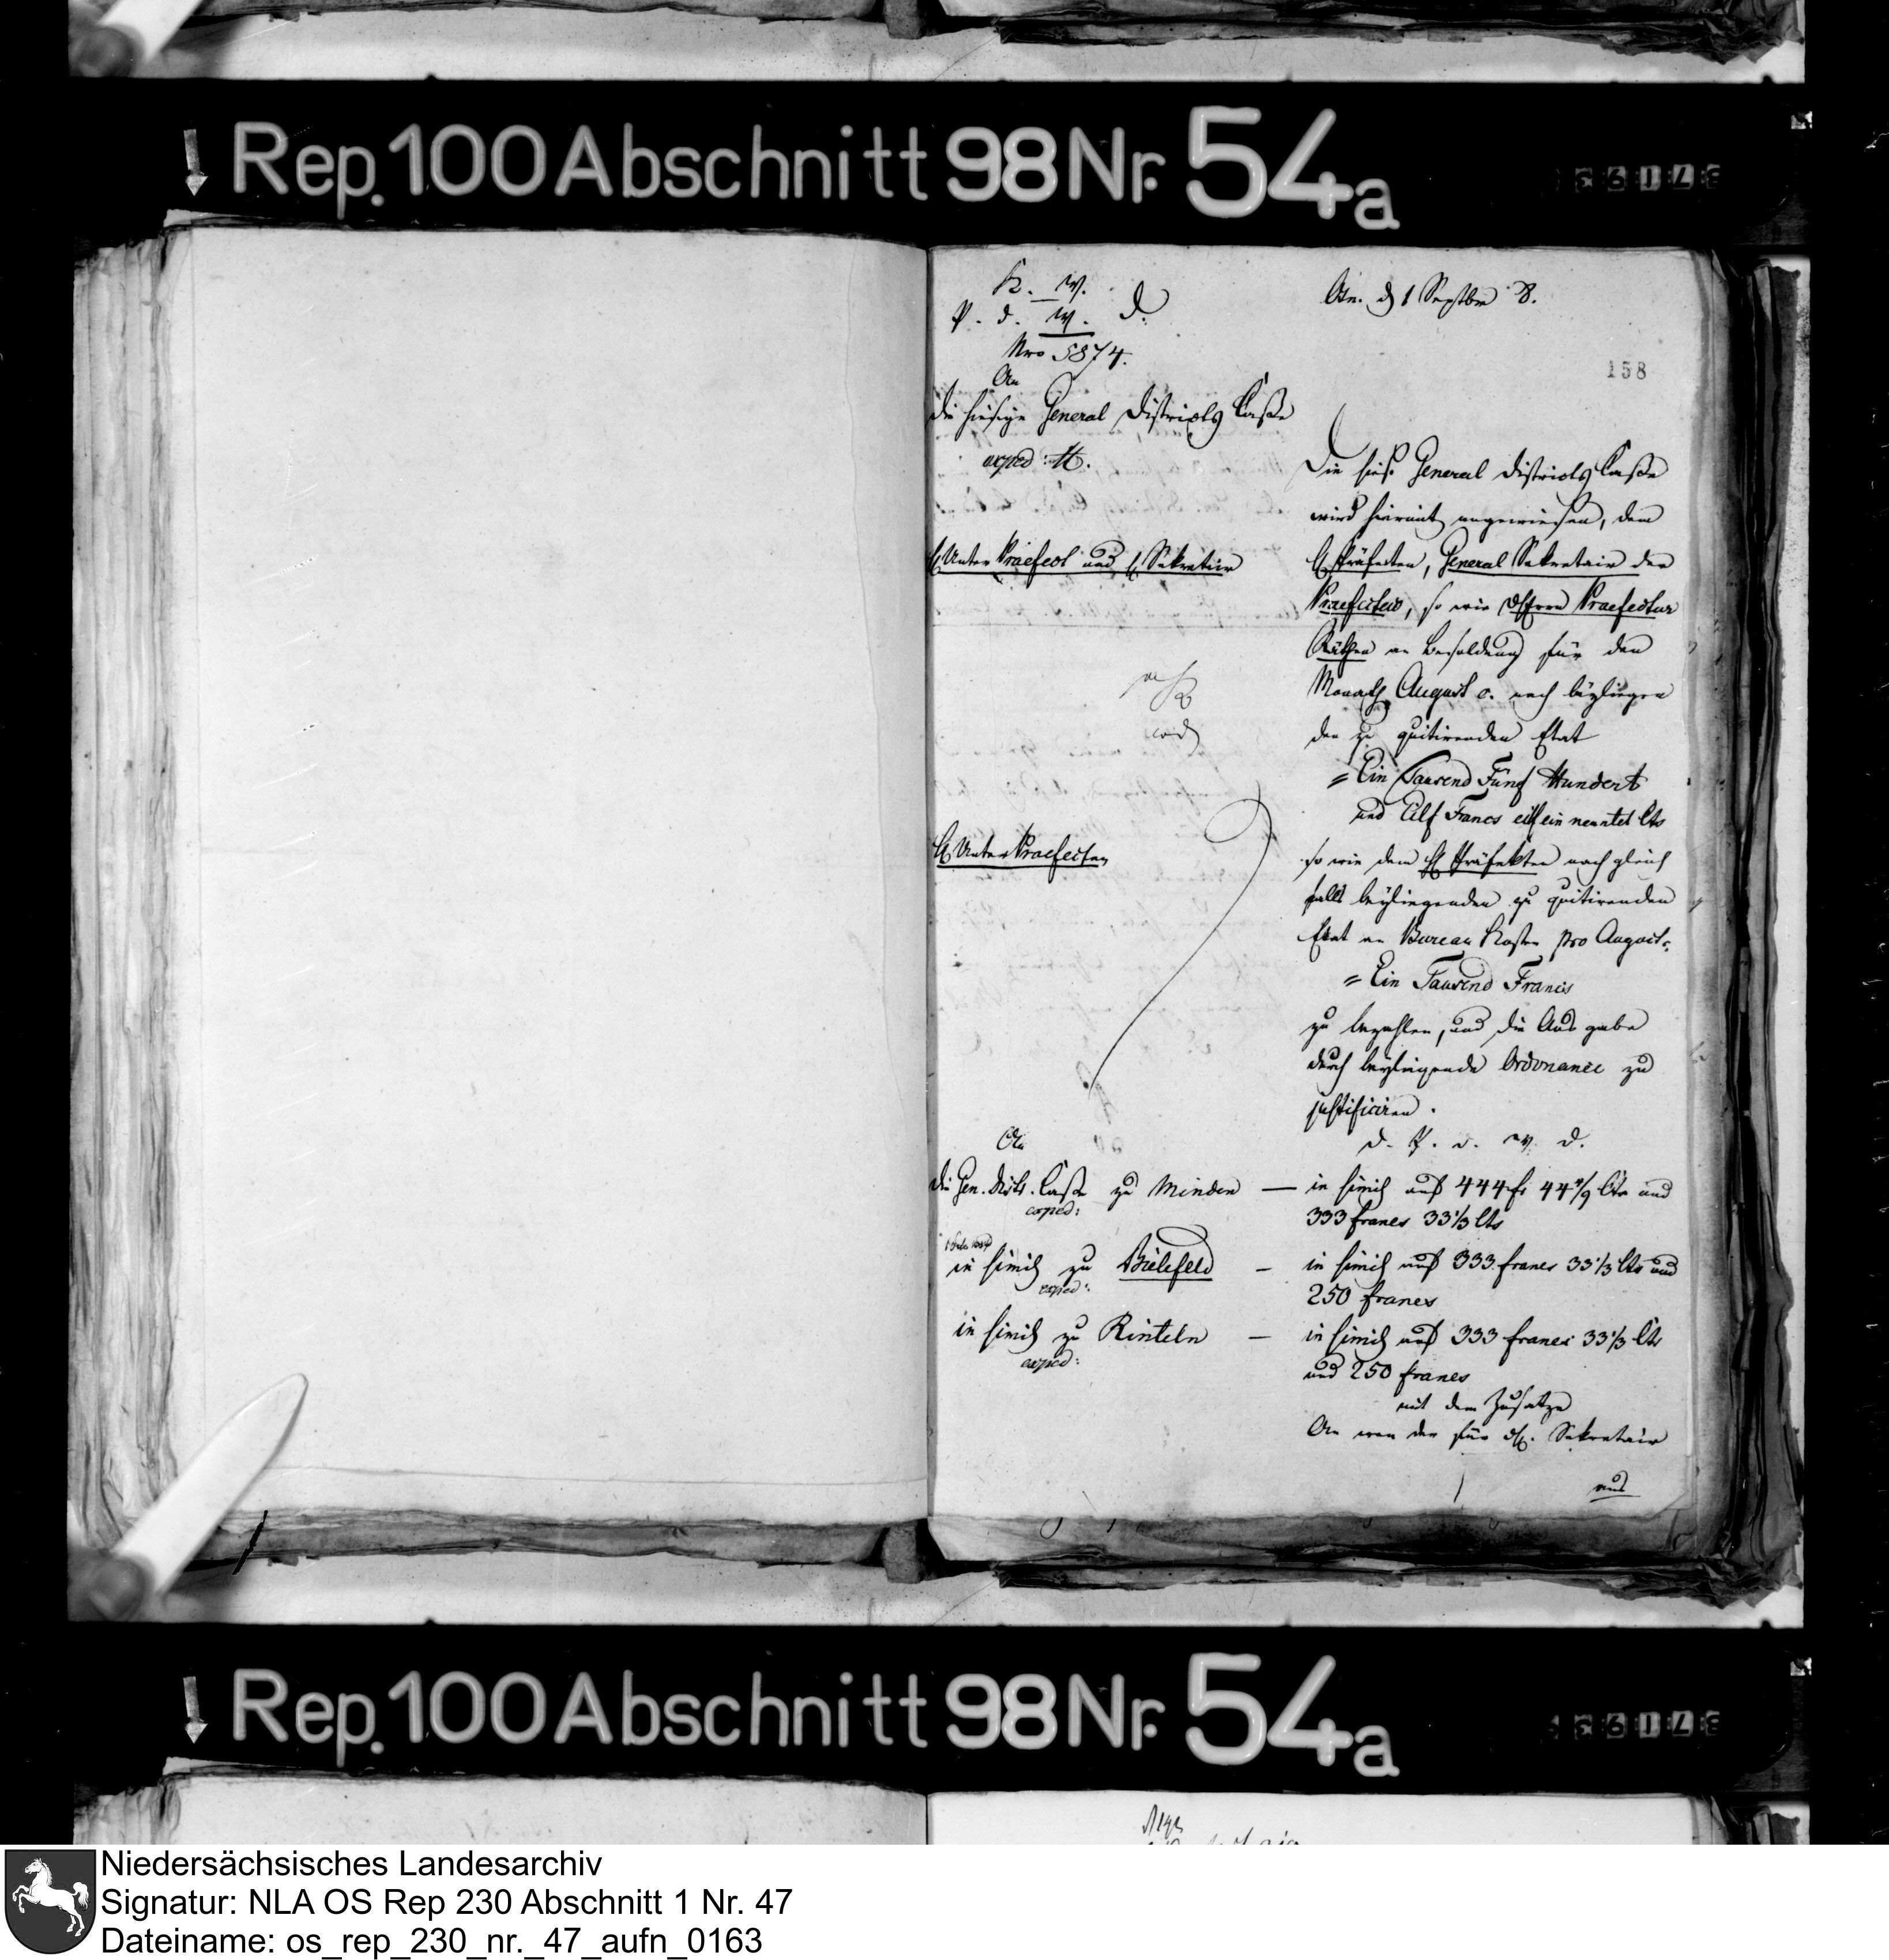 Rep. 100 Abschnitt 98 Nr. 54a
K. W.
P. d. W. D.
Nro 5874.
An
die hiesige General Districts Casse
exped: H.
H Unter Praefect und H Sekretair
H Unter Praefecten
Osn. d 1 Septbr 8.
158
Die hies. General Districts Casse
wird hiermit angewiesen, dem
H Präfecten, General Sekretair der
Praefectur, so wie Praefectur
Räthen an Besoldung für den
Monath August c. nach beyliegen
den zu quitirenden Etat
= Ein Tausend Fünf Hundert
und Eilf Francs eilf ein neuntel Cts
so wie dem H Präfekten nach gleich
falls beyliegenden zu quitirenden
Etat an Bureau Kosten pro August.
= Ein Tausend Francs
zu bezahlen, und die Ausgabe
durch beyliegende Ordonance zu
justificiren.
D. P. d. W. D.
An
die Gen. Distr. Casse zu Minden — in simili auf 444 fr 44 4/9 Cts und
exped:
333 francs 33 1/3 Cts
in simili zu Bielefeld — in simili auf 333 francs 33 1/3 Cts und
exped:
250 francs
in simili zu Rinteln — in simili auf 333 francs 33 1/3 Cts
exped:
und 250 francs
mit dem Zusatze
An den für Sekretair
Rep. 100 Abschnitt 98 Nr. 54a
Niedersächsisches Landesarchiv
Signatur: NLA OS Rep 230 Abschnitt 1 Nr. 47
Dateiname: os_rep_230_nr._47_aufn_0163